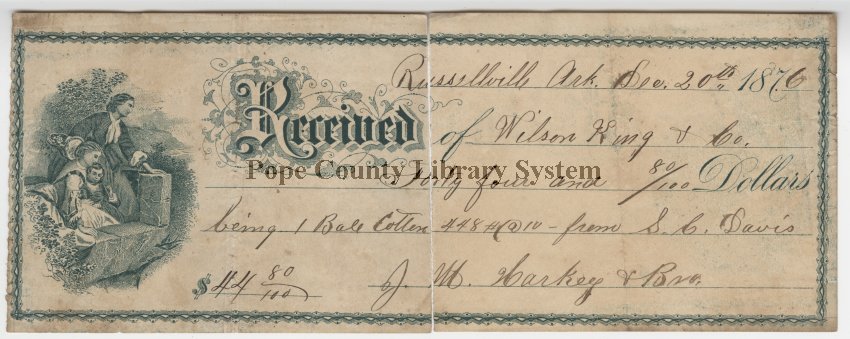 Russellville Ark. Dec. 20th 1876
Received of Wilson King & Co.
Pope County Library System
Forty four and 80/100 Dollars
being 1 Bale Cotton 448 # @ 10 - from S. C. Davis
$44 80/100 J. M. Harkey & Bro.